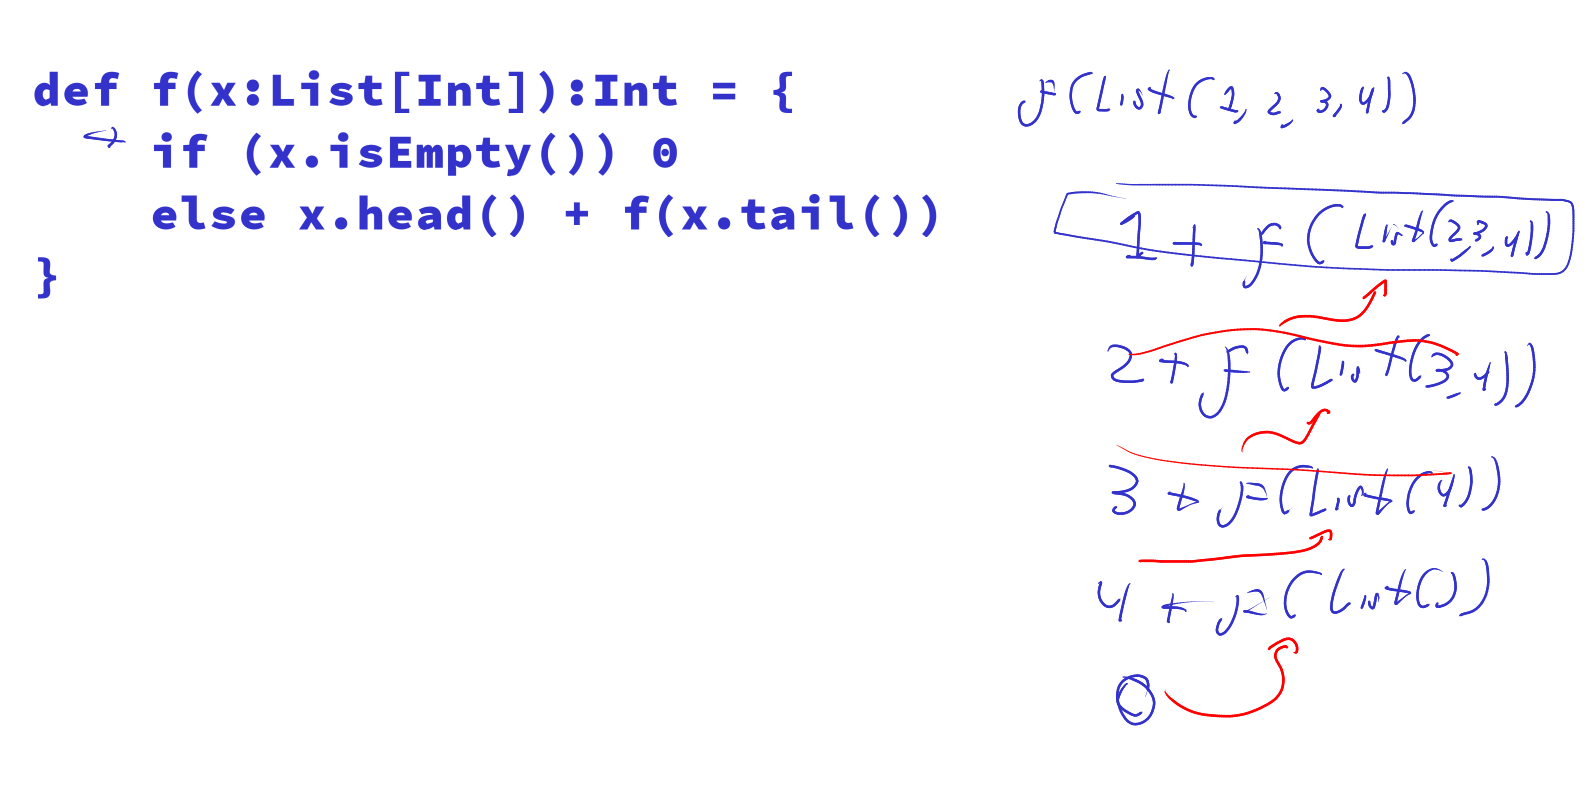 def f(x:List[Int]):Int = {
if (x.isEmpty()) 0
else x.head() + f(x.tail())
}
f(List(1, 2, 3, 4))
1 + f(List(2,3,4))
2 + f(List(3,4))
3 + f(List(4))
4 + f(List())
0